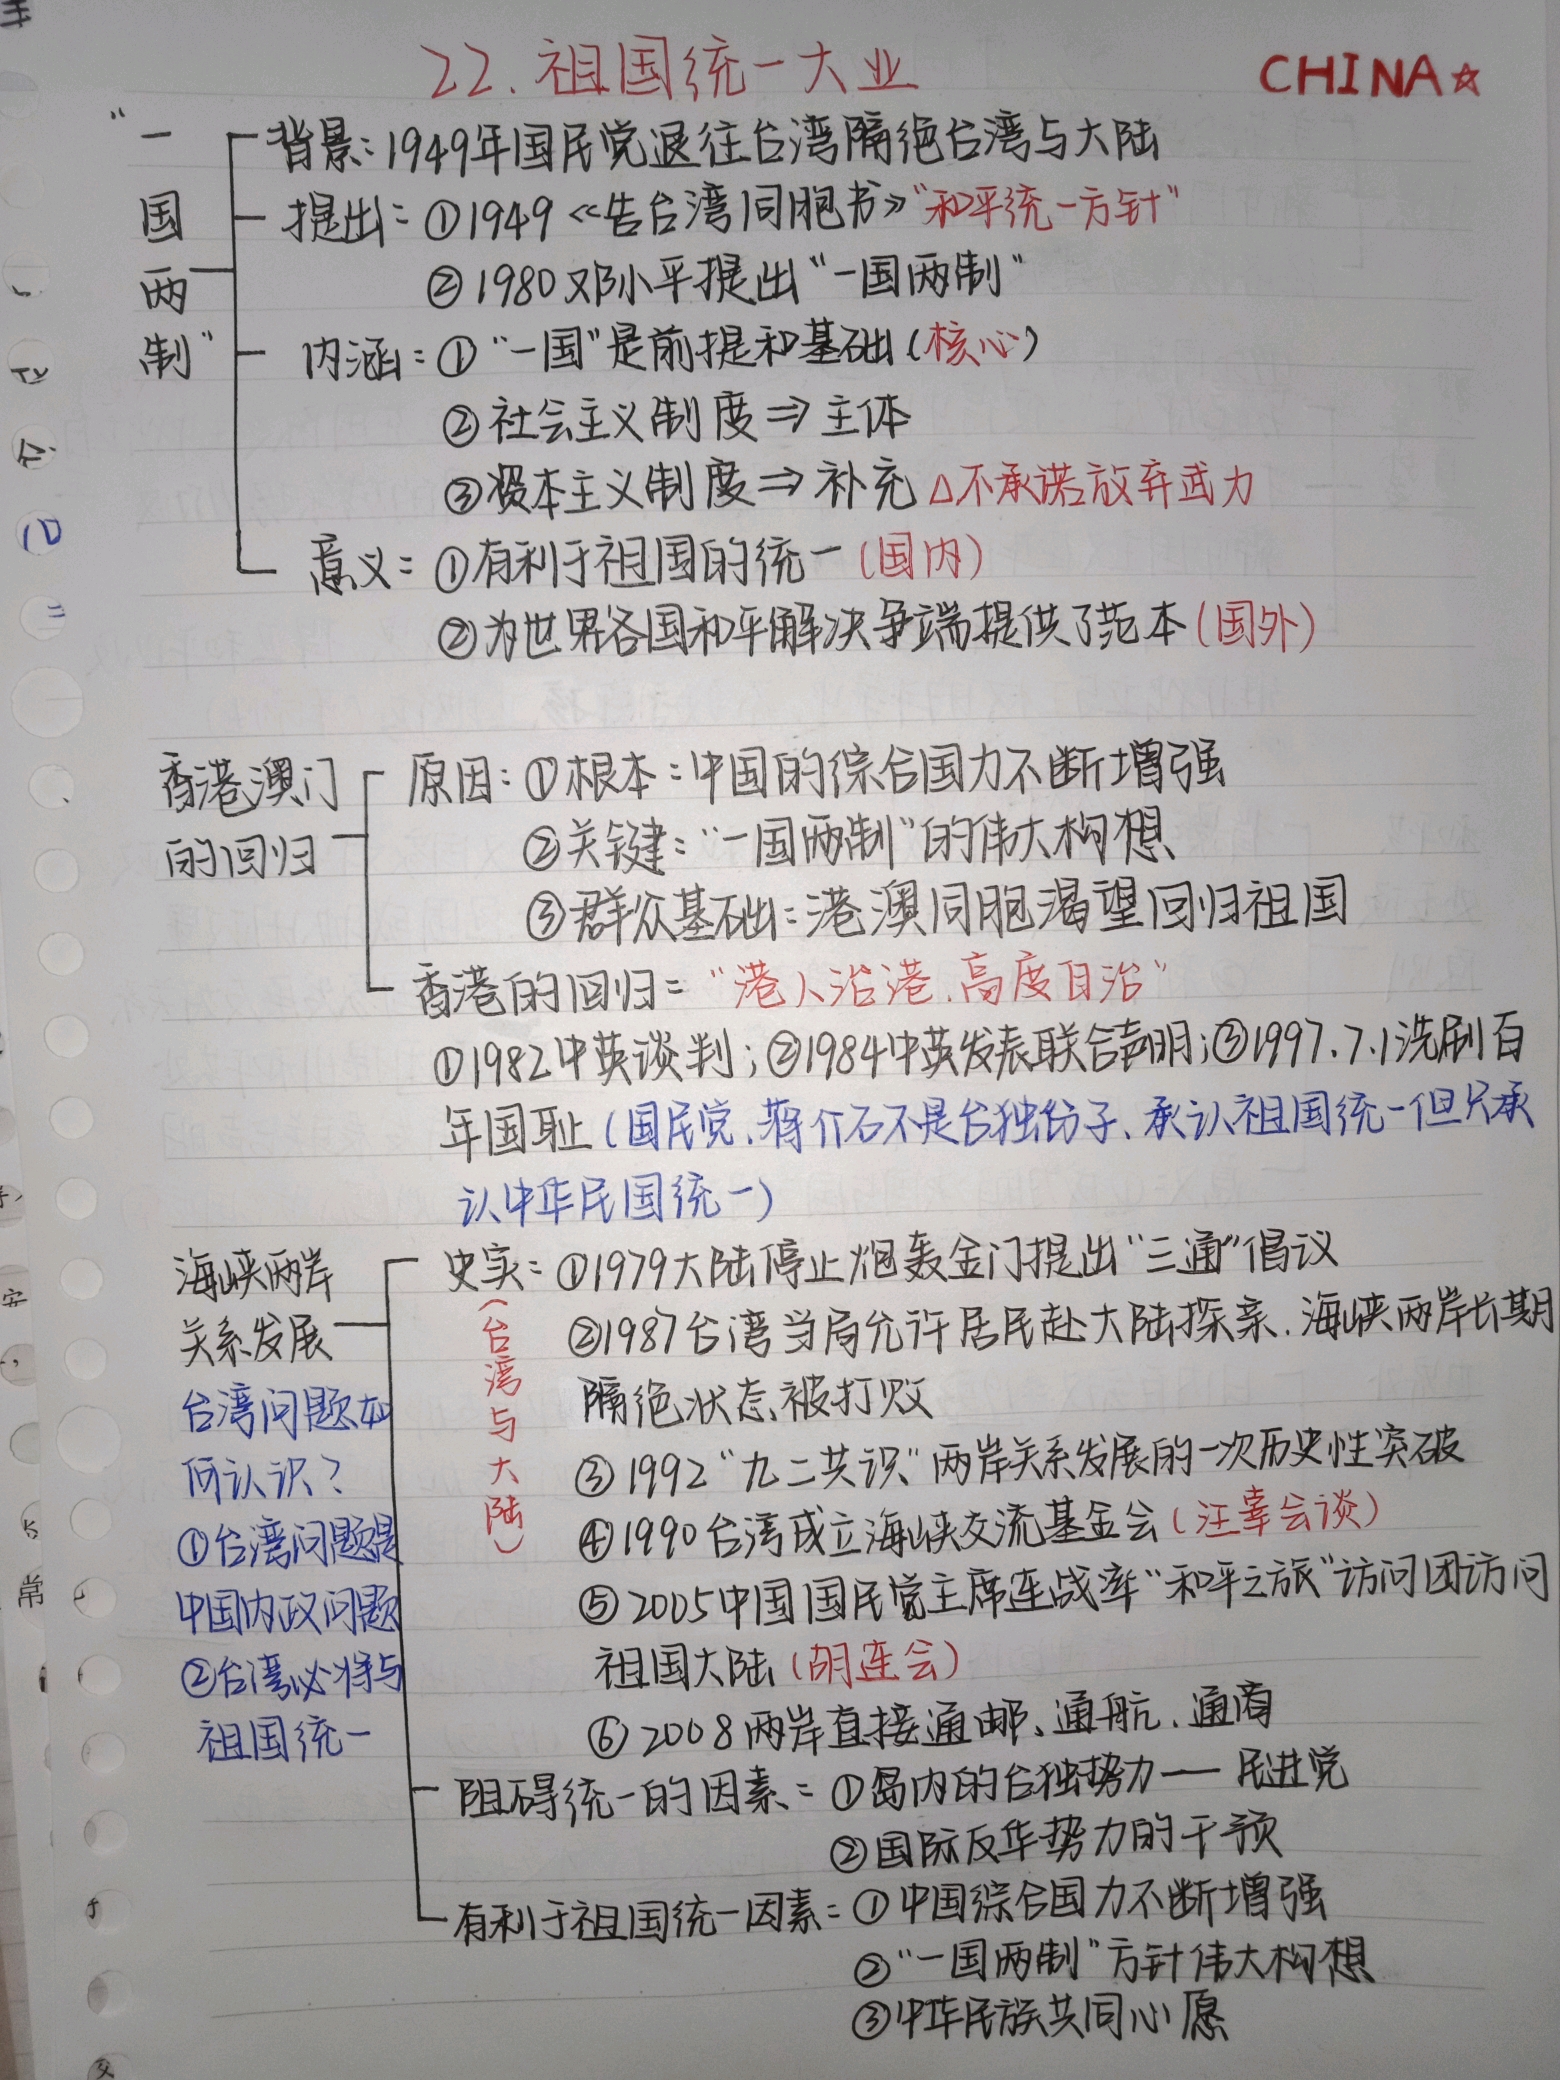 22.祖国统一大业
CHINA☆
“一国两制”
背景:1949年国民党退往台湾隔绝台湾与大陆
提出:①1949《告台湾同胞书》“和平统一方针”
②1980邓小平提出“一国两制”
内涵:①“一国”是前提和基础(核心)
②社会主义制度⇒主体
③资本主义制度⇒补充 △不承诺放弃武力
意义:①有利于祖国的统一(国内)
②为世界各国和平解决争端提供了范本(国外)
香港澳门
的回归
原因:①根本:中国的综合国力不断增强
②关键:“一国两制”的伟大构想
③群众基础:港澳同胞渴望回归祖国
香港的回归:“港人治港、高度自治”
①1982中英谈判;②1984中英发表联合声明;③1997.7.1洗刷百
年国耻(国民党、蒋介石不是台独份子、承认祖国统一但只承
认中华民国统一)
海峡两岸
关系发展
台湾问题如
何认识?
①台湾问题是
中国内政问题
②台湾必将与
祖国统一
史实:①1979大陆停止炮轰金门提出“三通”倡议
(台湾与大陆)
②1987台湾当局允许居民赴大陆探亲.海峡两岸长期
隔绝状态被打败
③1992“九二共识”两岸关系发展的一次历史性突破
④1990台湾成立海峡交流基金会(汪辜会谈)
⑤2005中国国民党主席连战率“和平之旅”访问团访问
祖国大陆(胡连会)
⑥2008两岸直接通邮、通航、通商
阻碍统一的因素:①岛内的台独势力——民进党
②国际反华势力的干预
有利于祖国统一因素:①中国综合国力不断增强
②“一国两制”方针伟大构想
③中华民族共同心愿